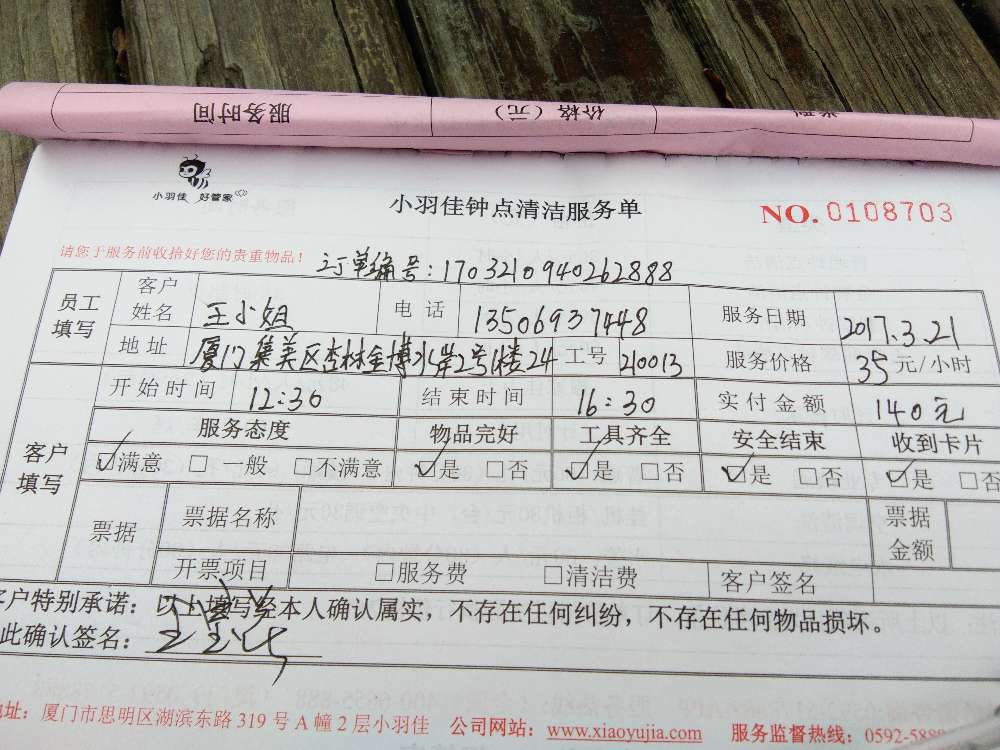 服务时间 价格（元） 类型
小羽佳 好管家
小羽佳钟点清洁服务单 NO. 0108703
请您于服务前收拾好您的贵重物品！ 订单编号：1703210940262888
员工填写 客户姓名 王小姐 电话 13506937448 服务日期 2017.3.21
地址 厦门集美区杏林金博水岸2号楼24 工号 210013 服务价格 35 元/小时
客户填写 开始时间 12:30 结束时间 16:30 实付金额 140元
服务态度 物品完好 工具齐全 安全结束 收到卡片
☑满意 □一般 □不满意 ☑是 □否 ☑是 □否 ☑是 □否 ☑是 □否
票据 票据名称 票据金额
开票项目 □服务费 □清洁费 客户签名
客户特别承诺：以上填写经本人确认属实，不存在任何纠纷，不存在任何物品损坏。
此确认签名：
地址：厦门市思明区湖滨东路 319 号 A 幢 2 层小羽佳 公司网站：www.xiaoyujia.com 服务监督热线：0592-588